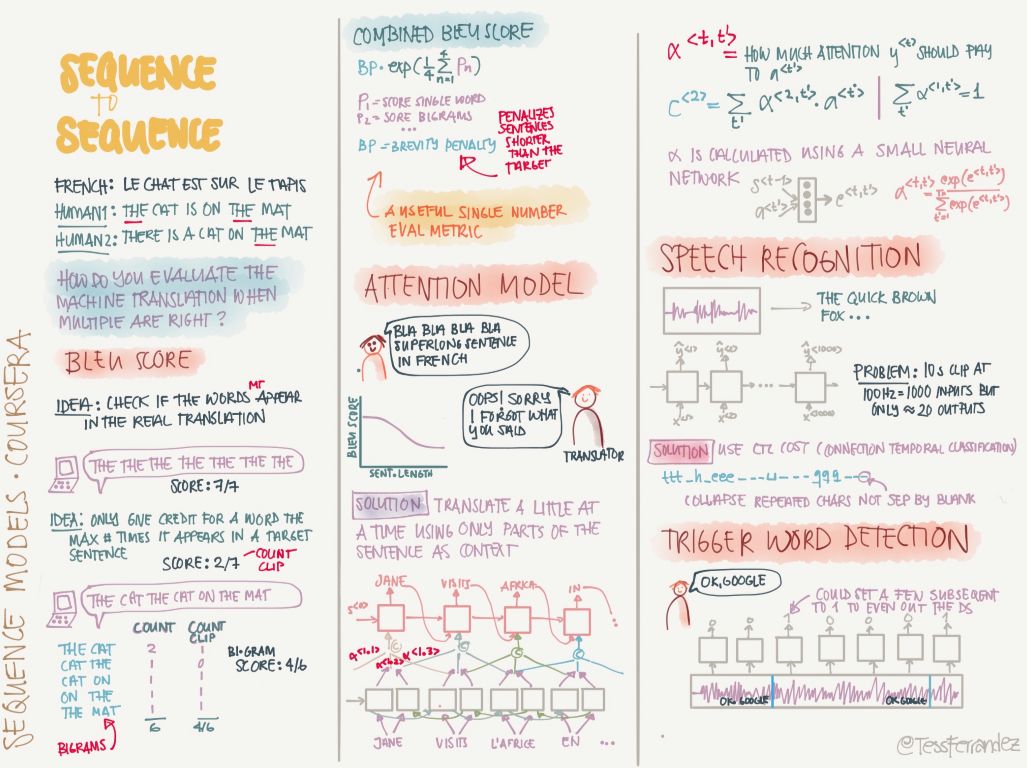 SEQUENCE MODELS · COURSERA
SEQUENCE
TO
SEQUENCE
FRENCH: LE CHAT EST SUR LE TAPIS
HUMAN1: THE CAT IS ON THE MAT
HUMAN2: THERE IS A CAT ON THE MAT
HOW DO YOU EVALUATE THE
MACHINE TRANSLATION WHEN
MULTIPLE ARE RIGHT?
BLEU SCORE
MT
IDEA: CHECK IF THE WORDS APPEAR
IN THE REAL TRANSLATION
THE THE THE THE THE THE THE
SCORE: 7/7
IDEA: ONLY GIVE CREDIT FOR A WORD THE
MAX # TIMES IT APPEARS IN A TARGET
SENTENCE
SCORE: 2/7
COUNT
CLIP
THE CAT THE CAT ON THE MAT
COUNT COUNT
CLIP
THE CAT 2 1
CAT THE 1 0
CAT ON 1 1
ON THE 1 1
THE MAT 1 1
6 4/6
BI-GRAM
SCORE: 4/6
BIGRAMS
COMBINED BLEU SCORE
BP · exp(1/4 4∑n=1 Pn)
P1 = SCORE SINGLE WORD
P2 = SORE BIGRAMS
...
BP = BREVITY PENALTY
PENALIZES
SENTENCES
SHORTER
THAN THE
TARGET
A USEFUL SINGLE NUMBER
EVAL METRIC
ATTENTION MODEL
BLA BLA BLA BLA
SUPERLONG SENTENCE
IN FRENCH
OOPS! SORRY
I FORGOT WHAT
YOU SAID
TRANSLATOR
BLEU SCORE
SENT. LENGTH
SOLUTION TRANSLATE A LITTLE AT
A TIME USING ONLY PARTS OF THE
SENTENCE AS CONTEXT
JANE VISITS AFRICA IN
s<0> ...
C C C C
α<1,1> α<1,2> α<1,3>
JANE VISITS L'AFRICE EN ...
α<t,t'> = HOW MUCH ATTENTION y<t> SHOULD PAY
TO a<t'>
C<2> = ∑t' α<2,t'> · a<t'> | ∑t' α<1,t'> = 1
α IS CALCULATED USING A SMALL NEURAL
NETWORK
s<t-1>
a<t'>
e<t,t'>
α<t,t'> = exp(e<t,t'>) / Tx∑t'=1 exp(e<t,t'>)
SPEECH RECOGNITION
THE QUICK BROWN
FOX ...
ŷ<1> ŷ<2> ŷ<1000>
...
x<1> x<2> x<1000>
PROBLEM: 10s CLIP AT
100Hz = 1000 INPUTS BUT
ONLY ≈ 20 OUTPUTS
SOLUTION USE CTC COST (CONNECTION TEMPORAL CLASSIFICATION)
ttt_h_eee---⊔---qqq--
COLLAPSE REPEATED CHARS NOT SEP BY BLANK
TRIGGER WORD DETECTION
OK, GOOGLE
COULD SET A FEW SUBSEQUENT
TO 1 TO EVEN OUT THE DS
0 0 1 0 0 0 1
OK GOOGLE OK GOOGLE
@TessFerrandez